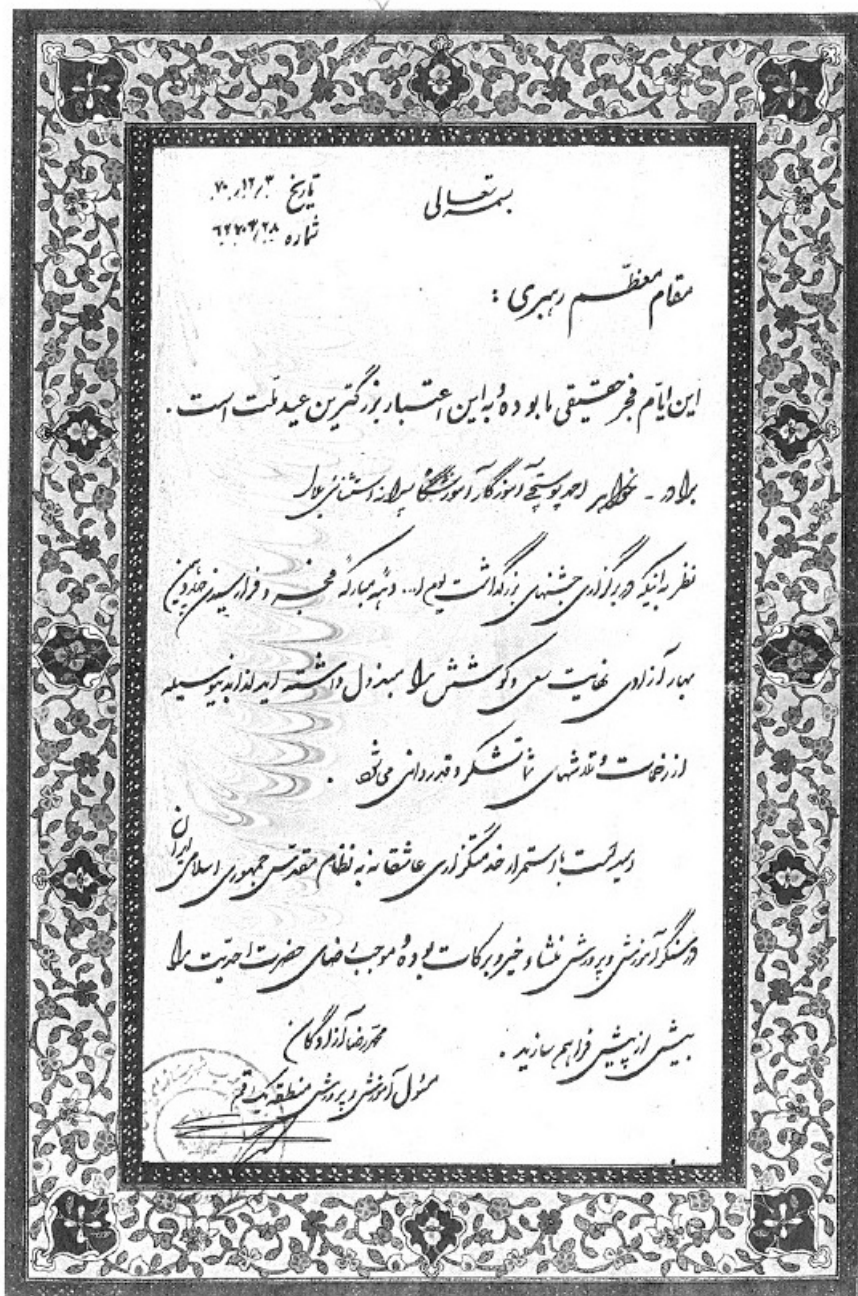 بسمه تعالی
تاریخ ۷۰/۱۲/۳
شماره
مقام معظّم رهبری :
این ایّام فجر حقیقی ما بوده و به این اعتبار بزرگترین عید ملّت است .
برادر - خواهر احمد پوستچی آموزگار آموزشگاه پسرانه استثنائی بلال
نظر به اینکه در برگزاری جشنهای بزرگداشت یوم ا... دهه مبارکه فجر و فرارسیدن
بهار آزادی نهایت سعی و کوشش را مبذول داشته اید لذا بدینوسیله
از زحمات و تلاشهای شما تشکر و قدردانی می شود .
امید است با استمرار خدمتگزاری عاشقانه به نظام مقدّس جمهوری اسلامی ایران
در سنگر آموزش و پرورش منشاء خیر و برکات بوده و موجب رضای حضرت احدیّت را
بیش از پیش فراهم سازید .
محمدرضا آزادگان
مسئول آموزش و پرورش منطقه یک قم